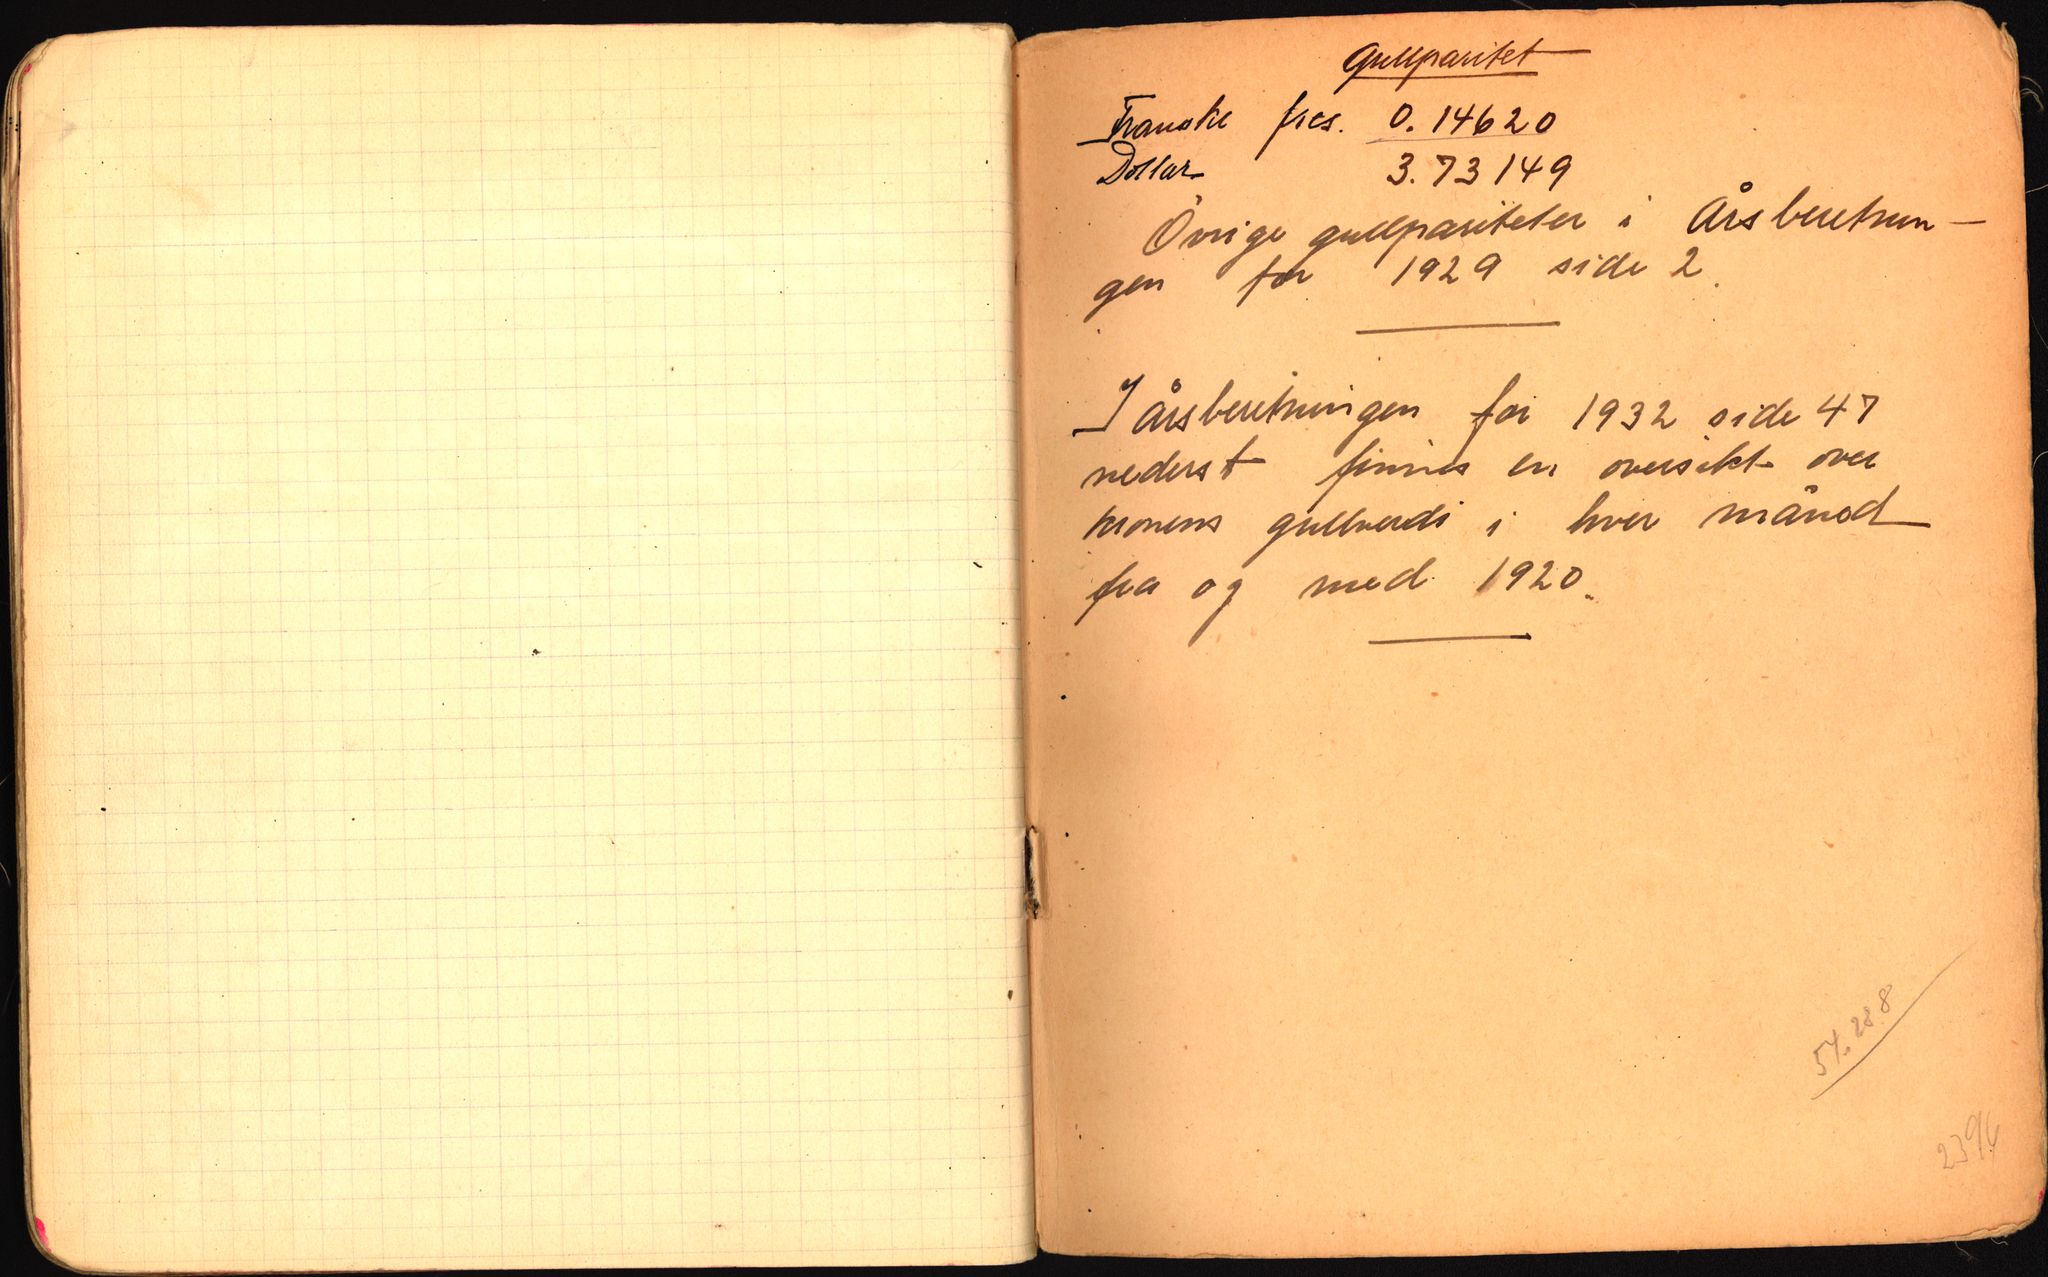 Gullparitet
Franske frcs. 0.14620
Dollar 3.73149
Övrige gullpariteter i Årsberetnin-
gen for 1929 side 2.
I årsberetningen for 1932 side 47
nederst finnes en oversikt over
kronens gullverdi i hver månod
fra og med 1920.
54.288
2396